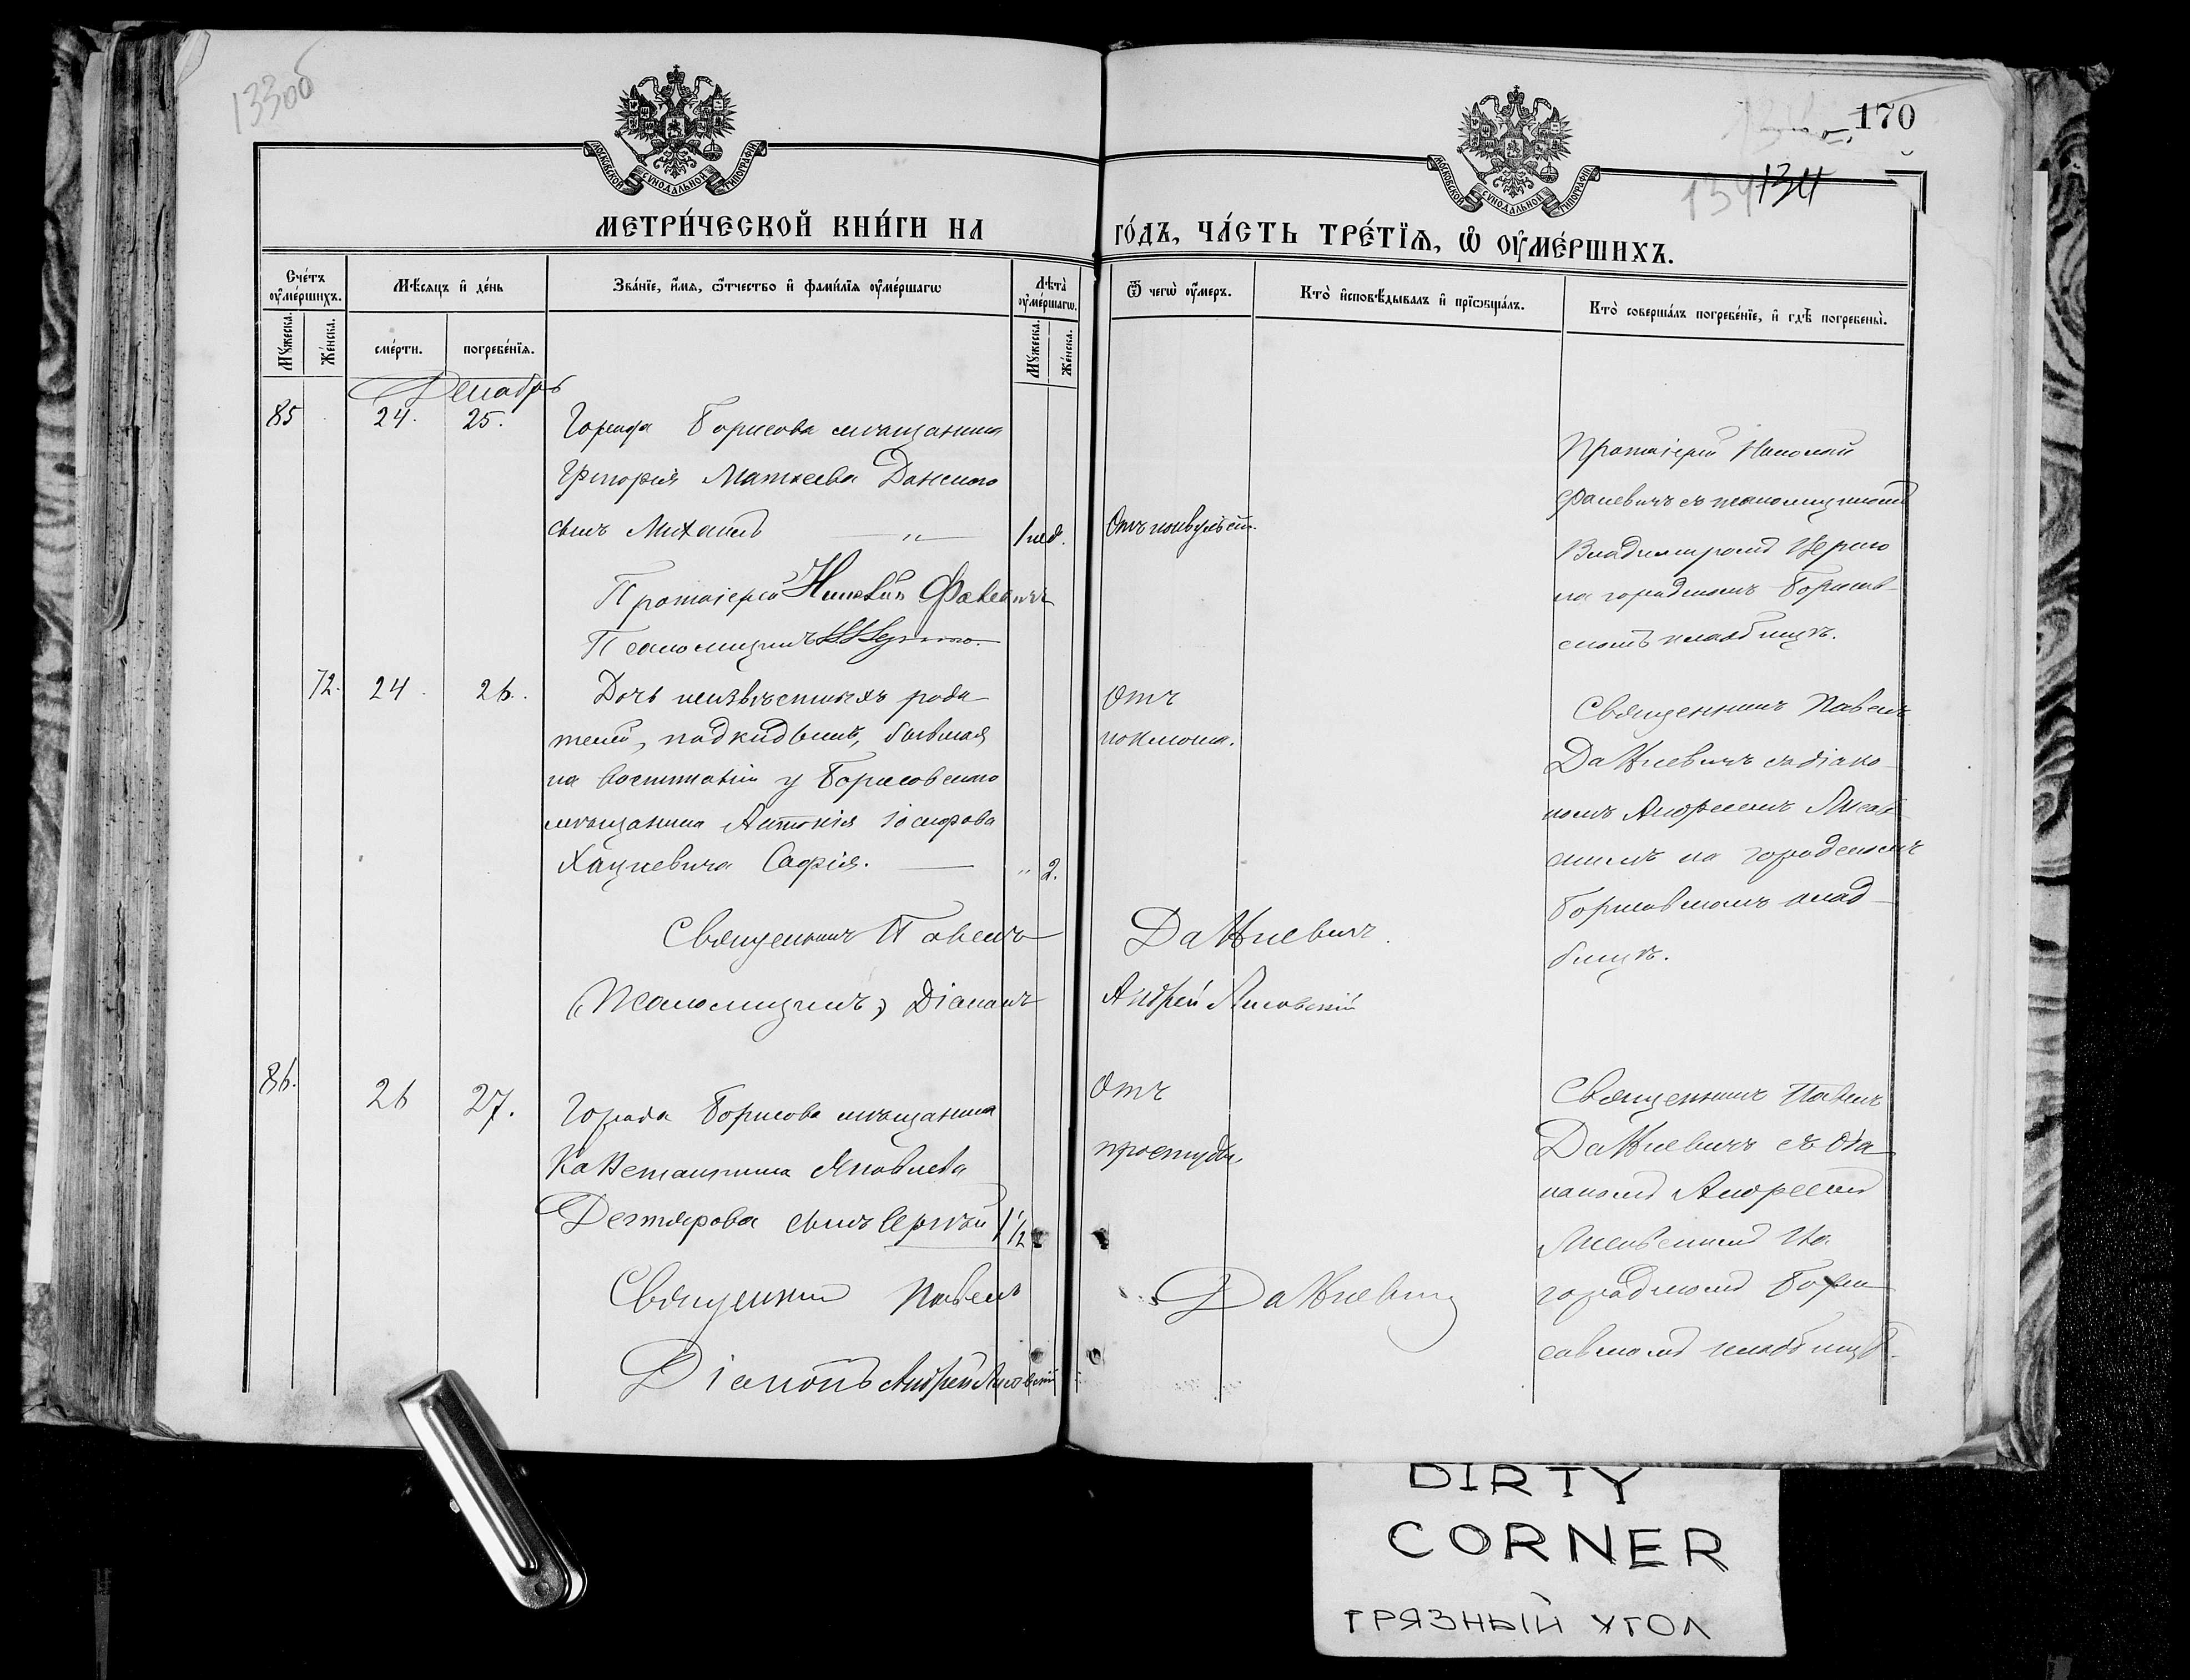 133об
170
134 134
МОСКОВСКОЙ СѴНОДАЛЬНОЙ ТИПОГРАФІИ
МОСКОВСКОЙ СѴНОДАЛЬНОЙ ТИПОГРАФІИ
МЕТРИ́ЧЕСКОЙ КНИ́ГИ НА
ГО́ДЪ, ЧА́СТЬ ТРЕ́ТЇѦ, Ѽ ОУ҆МЕ́РШИХЪ.
Сче́тъ оу҆ме́ршихъ.
Мꙋ́жеска.
Же́нска.
Мѣ́сѧцъ и҆ де́нь
сме́рти.
погребе́нїѧ.
Зва́нїе, и҆́мѧ, ѻ҆́тчество и҆ фами́лїѧ оу҆ме́ршагѡ
Лѣ̑та̀ оу҆ме́ршагѡ.
Мꙋ́жеска.
Же́нска.
Ѿ чегѡ̀ оу҆́меръ.
Кто̀ и҆сповѣ́дывалъ и҆ прїѡбща́лъ.
Кто̀ соверша́лъ погребе́нїе, и҆ гдѣ̀ погребены̀.
Декабрь
85 24. 25.
Города Борисова мѣщанина
Григорія Матѳеева Донского
сынъ Михаилъ — „ — 1 нед.
Протоіерей Николай Фалевичъ
Псаломщикъ
Отъ конвульсій.
Протоіерей Николай
Фалевичъ съ псаломщикомъ
Владиміромъ
на городскомъ Борисов-
скомъ кладбищѣ.
72. 24. 26.
Дочь неизвѣстныхъ роди-
телей, подкидышъ, бывшая
на воспитаніи у Борисовскаго
мѣщанина Антонія Іосифова
Хацкевича Софія. — „ 2.
Священникъ Павелъ Дашкевичъ.
(Псаломщикъ) Діаконъ Андрей Лисовскій
Отъ
коклюша.
Священникъ Павелъ
Дашкевичъ съ діако-
номъ Андреемъ Лисов-
скимъ на городскомъ
Борисовскомъ клад-
бищѣ.
86. 26 27.
Города Борисова мѣщанина
Константина Яковлева
Дегтярова сынъ Сергѣй 1 1/2
Священникъ Павелъ Дашкевичъ
Діаконъ Андрей Лисовскій
Отъ
простуды.
Священникъ Павелъ
Дашкевичъ съ діа-
кономъ Андреемъ
Лисовскимъ на
городскомъ Бори-
совскомъ кладбищѣ.
DIRTY
CORNER
ГРЯЗНЫЙ УГОЛ